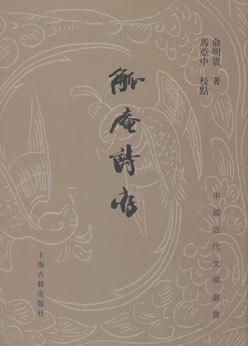 俞明震 著
馬亞中 校點
觚庵詩存
中國近代文學叢書
上海古籍出版社